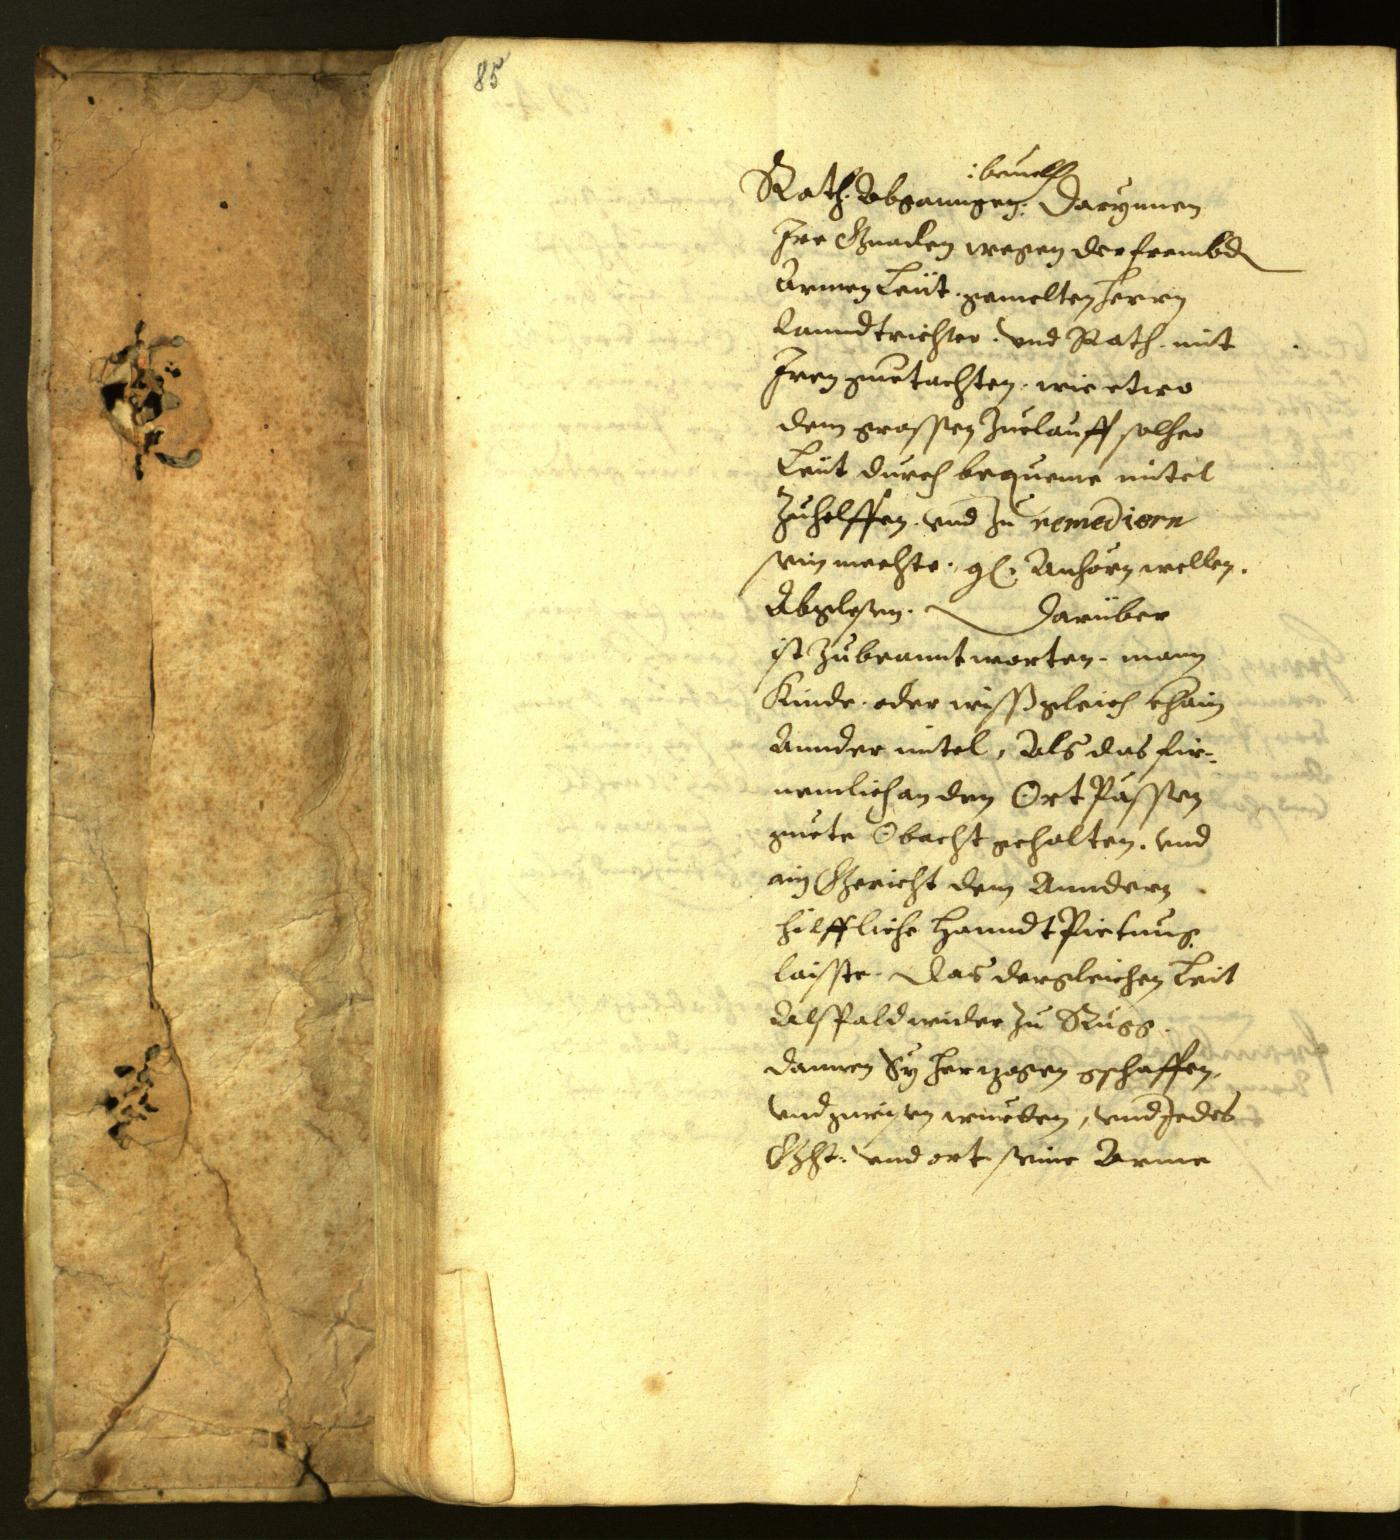 85
:beuelch
Rath. Abganngen: Darynnen
Ire Gnaden wegen der frembd
Armen Leüt. gemelten herrn
Lanndtrichter. vnd Rath. mit
Iren guetachten. wie etwo
dem grossen Zuelauff solher
Leüt durch bequeme mitel
Zuhelffen. vnd zu remediern
sein mechte. gl: Anhörn wellen.
Abgelesen. Darüber
ist Zubeanntworten. mann
Kinde. oder wiss gleich khain
Annder mitel, Als das für-
nemlich an den Ort Pässen
guete Obacht gehalten. vnd
ain Gericht dem Anndern
hilffliche Hanndt Pietung
laisste. Das dergleichen Leit
Alspald wider zu Rugg.
dannen Sy herzogen gschaffen,
vnd gwisen wurden, vnd Jedes
Ght: vnd ort seine Arme